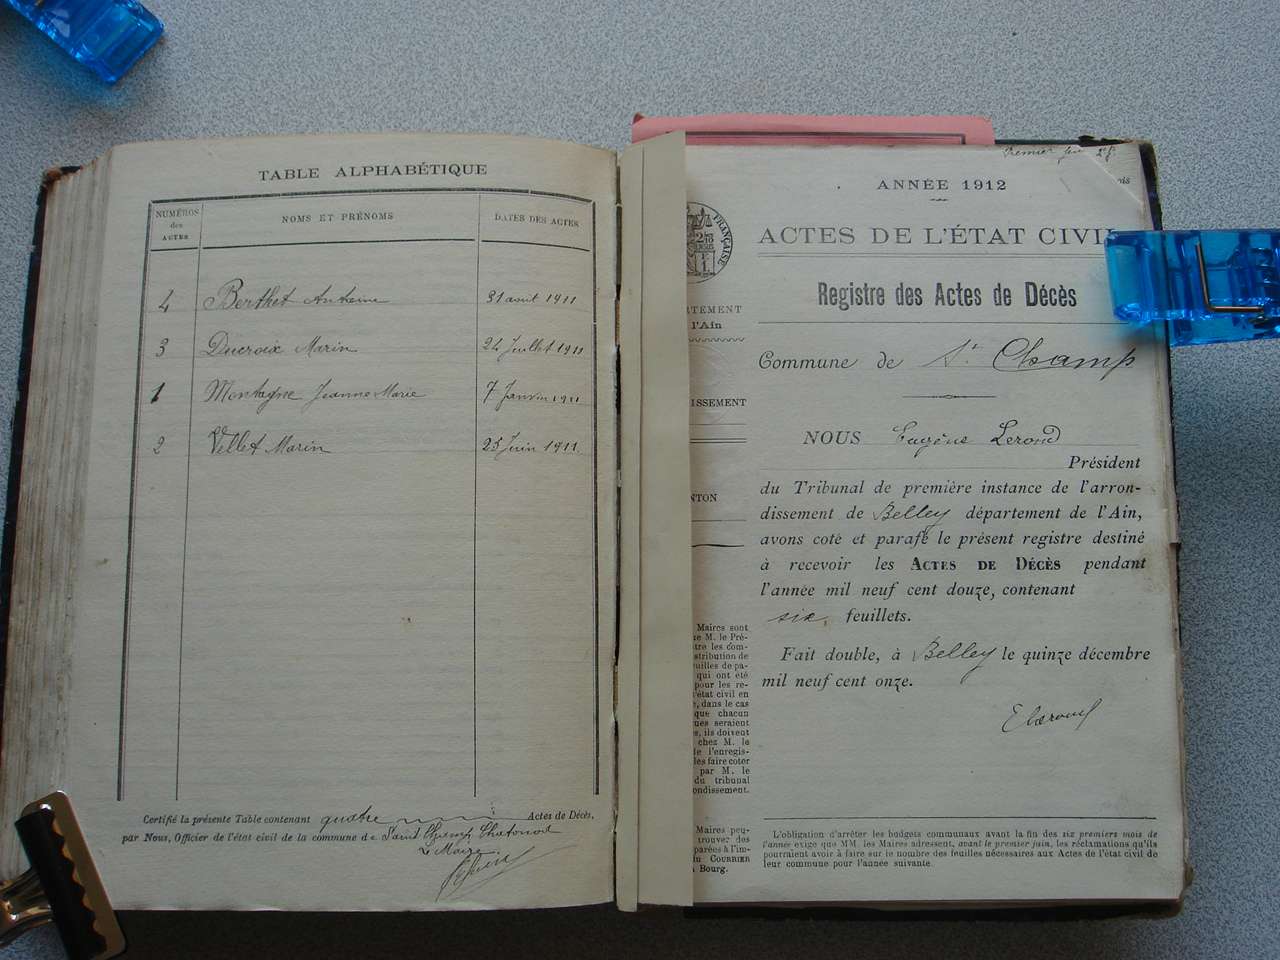 TABLE ALPHABÉTIQUE
NUMÉROS des ACTES
NOMS ET PRÉNOMS
DATES DES ACTES
4 Berthet Antoine 31 août 1911
3 Ducroix Marin 24 Juillet 1911
1 Montagne Jeanne Marie 7 Janvier 1911
2 Vellet Marin 25 Juin 1911
Certifié la présente Table contenant quatre Actes de Décès,
par Nous, Officier de l'état civil de la commune de Saint Champ Chatonod
Le Maire
Premier feuillet
ANNÉE 1912
ACTES DE L'ÉTAT CIVIL
Registre des Actes de Décès
Commune de St Champ
NOUS Eugène Lerond
Président
du Tribunal de première instance de l'arron-
dissement de Belley département de l'Ain,
avons coté et parafé le présent registre destiné
à recevoir les ACTES DE DÉCÈS pendant
l'année mil neuf cent douze, contenant
six feuillets.
Fait double, à Belley le quinze décembre
mil neuf cent onze.
E Lerond
L'obligation d'arrêter les budgets communaux avant la fin des six premiers mois de
l'année exige que MM. les Maires adressent, avant le premier juin, les réclamations qu'ils
pourraient avoir à faire sur le nombre des feuilles nécessaires aux Actes de l'état civil de
leur commune pour l'année suivante.
FRANÇAISE
TEMENT
l'Ain
ISSEMENT
NTON
Maires sont
ue M. le Pré-
tre les com-
stribution de
uilles de pa-
qui ont été
pour les re-
l'état civil en
e, dans le cas
que chacun
ues seraient
s, ils doivent
chez M. le
de l'enregis-
les faire coter
par M. le
du tribunal
ondissement.
Maires peu-
trouver des
parées à l'im-
du COURRIER
à Bourg.